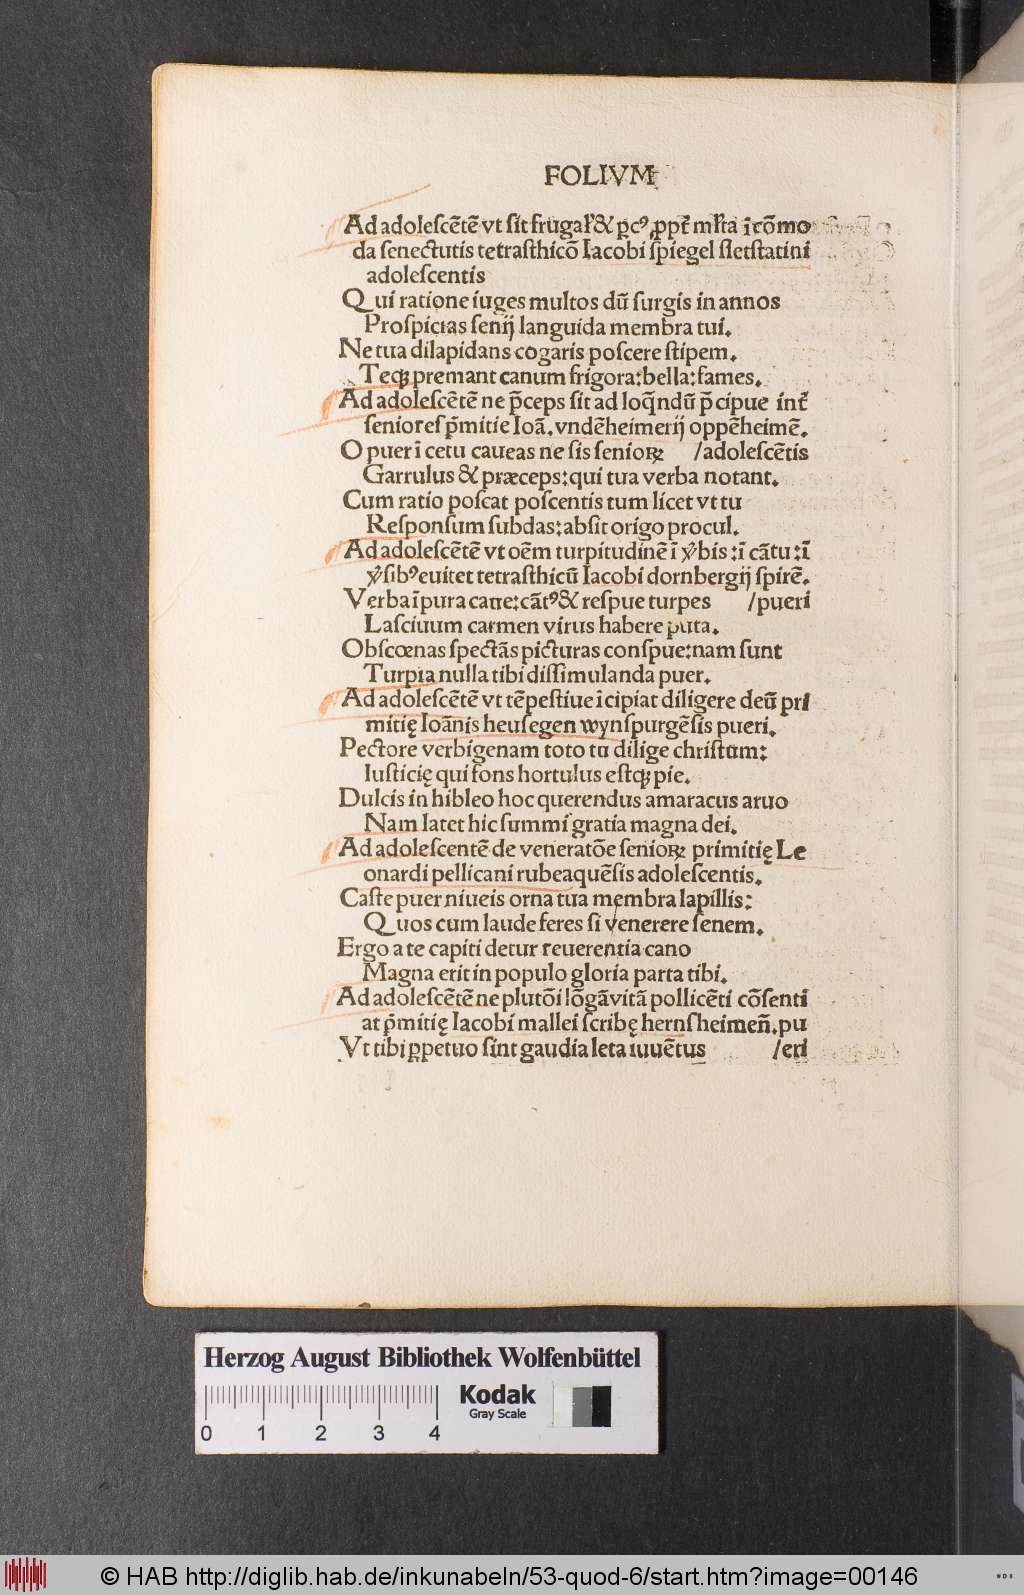 FOLIVM
Ad adoleſcẽtẽ vt ſit frugał & p̱cꝰ ꝓpt̃ młta ĩcõmo
da ſenectutis tetraſthicõ Iacobi ſpiegel ſletſtatini
adoleſcentis
Qui ratione iuges multos dũ ſurgis in annos
Proſpicias ſenij languida membra tui.
Ne tua dilapidans cogaris poſcere ſtipem.
Teqꝫ premant canum frigora: bella: fames.
Ad adoleſcẽtẽ ne p̃ceps ſit ad loq̃ndũ p̃cipue int̃
ſenioreſ p̃mitie Ioã. vndẽheimerij oppẽheimẽ.
O puer ĩ cetu caueas ne ſis ſenioꝝ /adoleſcẽtis
Garrulus & præceps: qui tua verba notant.
Cum ratio poſcat poſcentis tum licet vt tu
Reſponſum ſubdas: abſit origo procul.
Ad adoleſcẽtẽ vt oẽm turpitudinẽ ĩ v̾bis: ĩ cãtu: ĩ
v̾ſibꝰ euitet tetraſthicũ Iacobi dornbergij ſpirẽ.
Verba ĩpura caue: cãtꝰ & reſpue turpes /pueri
Laſciuum carmen virus habere puta.
Obſcœnas ſpectãs picturas conſpue: nam ſunt
Turpia nulla tibi diſſimulanda puer.
Ad adoleſcẽtẽ vt tẽpeſtiue ĩcipiat diligere deũ pri
mitię Ioãnis heuſegen wynſpurgẽſis pueri.
Pectore verbigenam toto tu dilige chriſtum:
Iuſticię qui fons hortulus eſtqꝫ pie.
Dulcis in hibleo hoc querendus amaracus aruo
Nam latet hic ſummi gratia magna dei.
Ad adoleſcentẽ de veneratõe ſenioꝝ primitię Le
onardi pellicani rubeaquẽſis adoleſcentis.
Caſte puer niueis orna tua membra lapillis:
Quos cum laude feres ſi venerere ſenem.
Ergo a te capiti detur reuerentia cano
Magna erit in populo gloria parta tibi.
Ad adoleſcẽtẽ ne plutõi lõgã vitã pollicẽti cõſenti
at p̃mitię Iacobi mallei ſcribę hernſheimeñ. pu
Vt tibi ꝑpetuo ſint gaudia leta iuuẽtus /eri
Herzog August Bibliothek Wolfenbüttel
Kodak
Gray Scale
0 1 2 3 4
© HAB http://diglib.hab.de/inkunabeln/53-quod-6/start.htm?image=00146